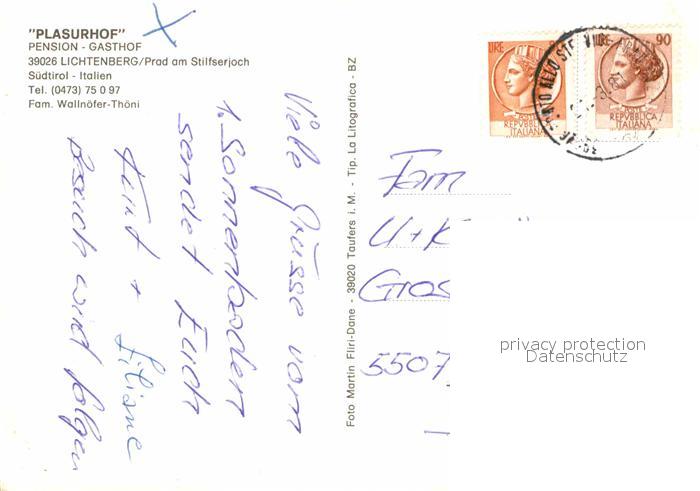 "PLASURHOF"
PENSION - GASTHOF
39026 LICHTENBERG/Prad am Stilfserjoch
Südtirol - Italien
Tel. (0473) 75 0 97
Fam. Wallnöfer-Thöni
Viele Grüsse vom
1. Sonnenbaden
sendet Euch
+ Liliane
Besuch wird folgen
Foto Martin Fliri-Dane - 39020 Taufers i. M. - Tip. La Litografica - BZ
LIRE
POSTE
REPVBBLICA
ITALIANA
LIRE 90
POSTE
REPVBBLICA
ITALIANA
Fam
U+K
Gros
5507
privacy protection
Datenschutz